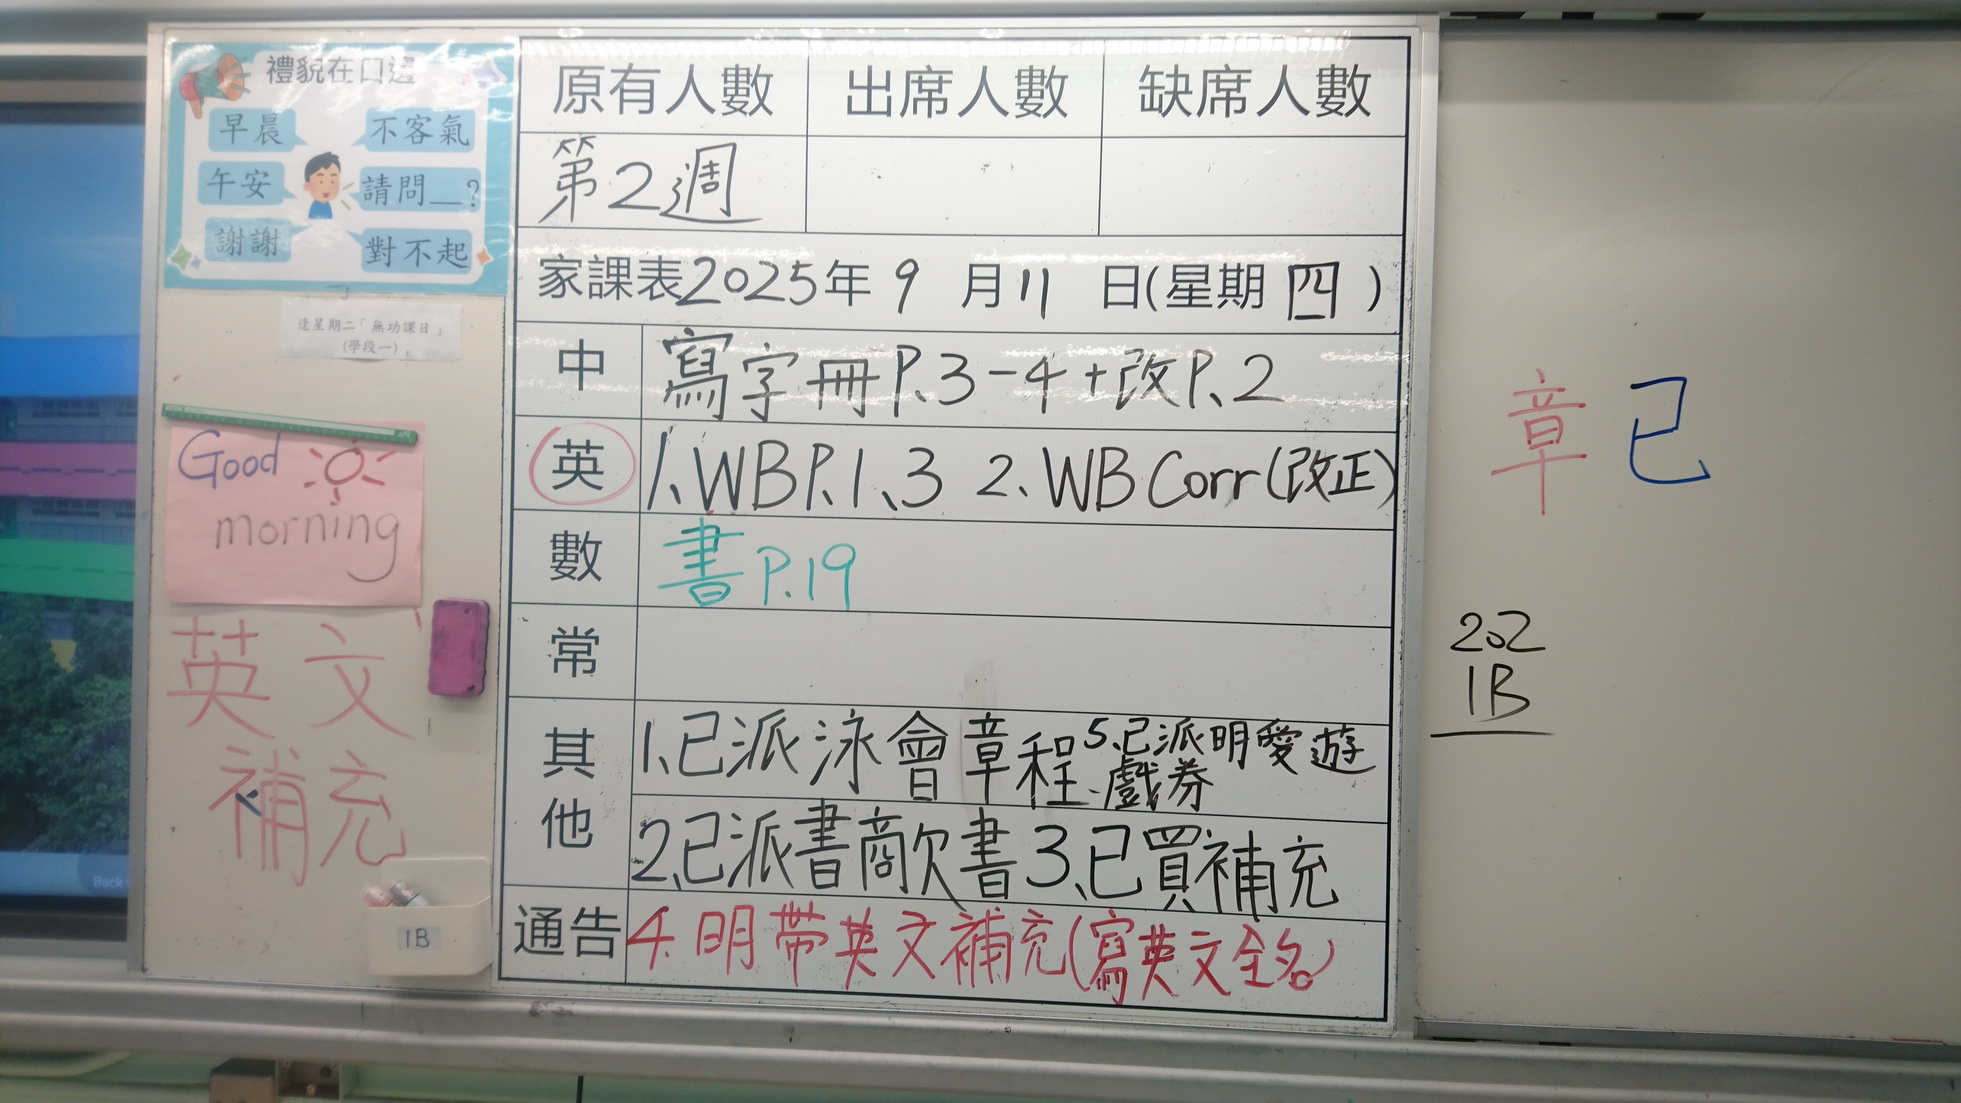 禮貌在口邊
早晨
不客氣
午安
請問__?
謝謝
對不起
逢星期二「無功課日」
(學段一)
Good
morning
英文
補充
1B
原有人數 出席人數 缺席人數
第2週
家課表2025年9月11日(星期四)
中 寫字冊P.3-4+改P.2
英 1.WBP.1、3 2.WB Corr(改正)
數 書P.19
常
其他 1.已派泳會章程 5.已派明愛遊戲券
2.已派書商欠書 3.已買補充
通告 4.明帶英文補充(寫英文全名)
章 已
202
1B
Back